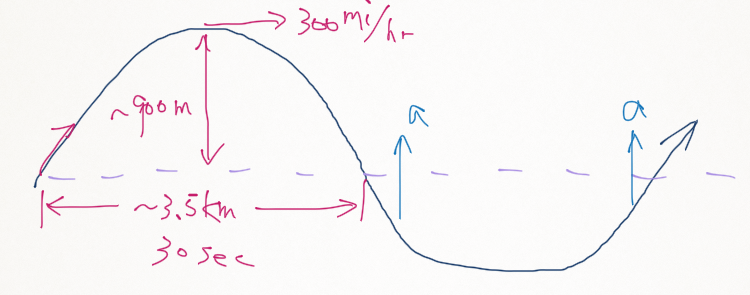 300 mi/hr
~900m
a
a
~3.5km
30 sec